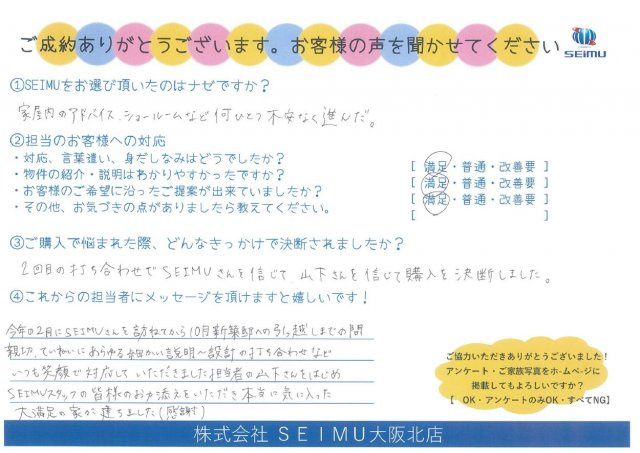 ご成約ありがとうございます。お客様の声を聞かせてください
SEIMU
①SEIMUをお選び頂いたのはナゼですか？
家屋内のアドバイス、ショールームなど何ひとつ不安なく進んだ。
②担当のお客様への対応
・対応、言葉遣い、身だしなみはどうでしたか？ [ 満足・普通・改善要 ]
・物件の紹介・説明はわかりやすかったですか？ [ 満足・普通・改善要 ]
・お客様のご希望に沿ったご提案が出来ていましたか？ [ 満足・普通・改善要 ]
・その他、お気づきの点がありましたら教えてください。 [ ]
③ご購入で悩まれた際、どんなきっかけで決断されましたか？
2回目の打ち合わせでSEIMUさんを信じて 山下さんを信じて購入を決断しました。
④これからの担当者にメッセージを頂けますと嬉しいです！
今年の2月にSEIMUさんを訪ねてから10月新築邸への引っ越しまでの間
親切、ていねいにあらゆる細かい説明〜設計の打ち合わせなど
いつも笑顔で対応していただきました担当者の山下さんをはじめ
SEIMUスタッフの皆様のお力添えをいただき本当に気に入った
大満足の家が建ちました(感謝)
ご協力いただきありがとうございました！
アンケート・ご家族写真をホームページに
掲載してもよろしいですか？
【 OK・アンケートのみOK・すべてNG】
株式会社 ＳＥＩＭＵ大阪北店